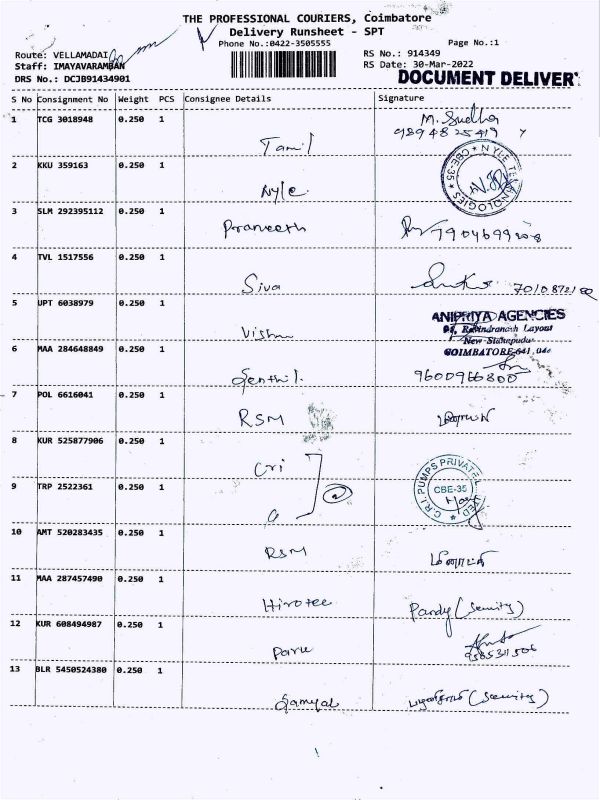 THE PROFESSIONAL COURIERS, Coimbatore
Delivery Runsheet - SPT
Phone No.:0422-3505555
Page No.:1
Route: VELLAMADAI
RS No.: 914349
Staff: IMAYAVARAMBAN
RS Date: 30-Mar-2022
DRS No.: DCJB91434901
DOCUMENT DELIVER
S No Consignment No Weight PCS Consignee Details Signature
1 TCG 3018948 0.250 1 Tamil M. Sudha
9894825419
2 KKU 359163 0.250 1 Nyle NYLE TECHNOLOGIES CBE-35
3 SLM 292395112 0.250 1 Praneeth
4 TVL 1517556 0.250 1 Siva
5 UPT 6038979 0.250 1 Vishnu ANIPRIYA AGENCIES
94, Ravindranath Layout
New Sidhapudur
COIMBATORE-641 044
6 MAA 284648849 0.250 1 Senthil. 9600966800
7 POL 6616041 0.250 1 RSM
8 KUR 525877906 0.250 1 Cri
9 TRP 2522361 0.250 1 C.R.I. PUMPS PRIVATE LIMITED CBE-35
10 AMT 520283435 0.250 1 RSM
11 MAA 287457490 0.250 1 Hirotec Pandy (Security)
12 KUR 608494987 0.250 1 9585311506
13 BLR 5450524380 0.250 1 (Security)